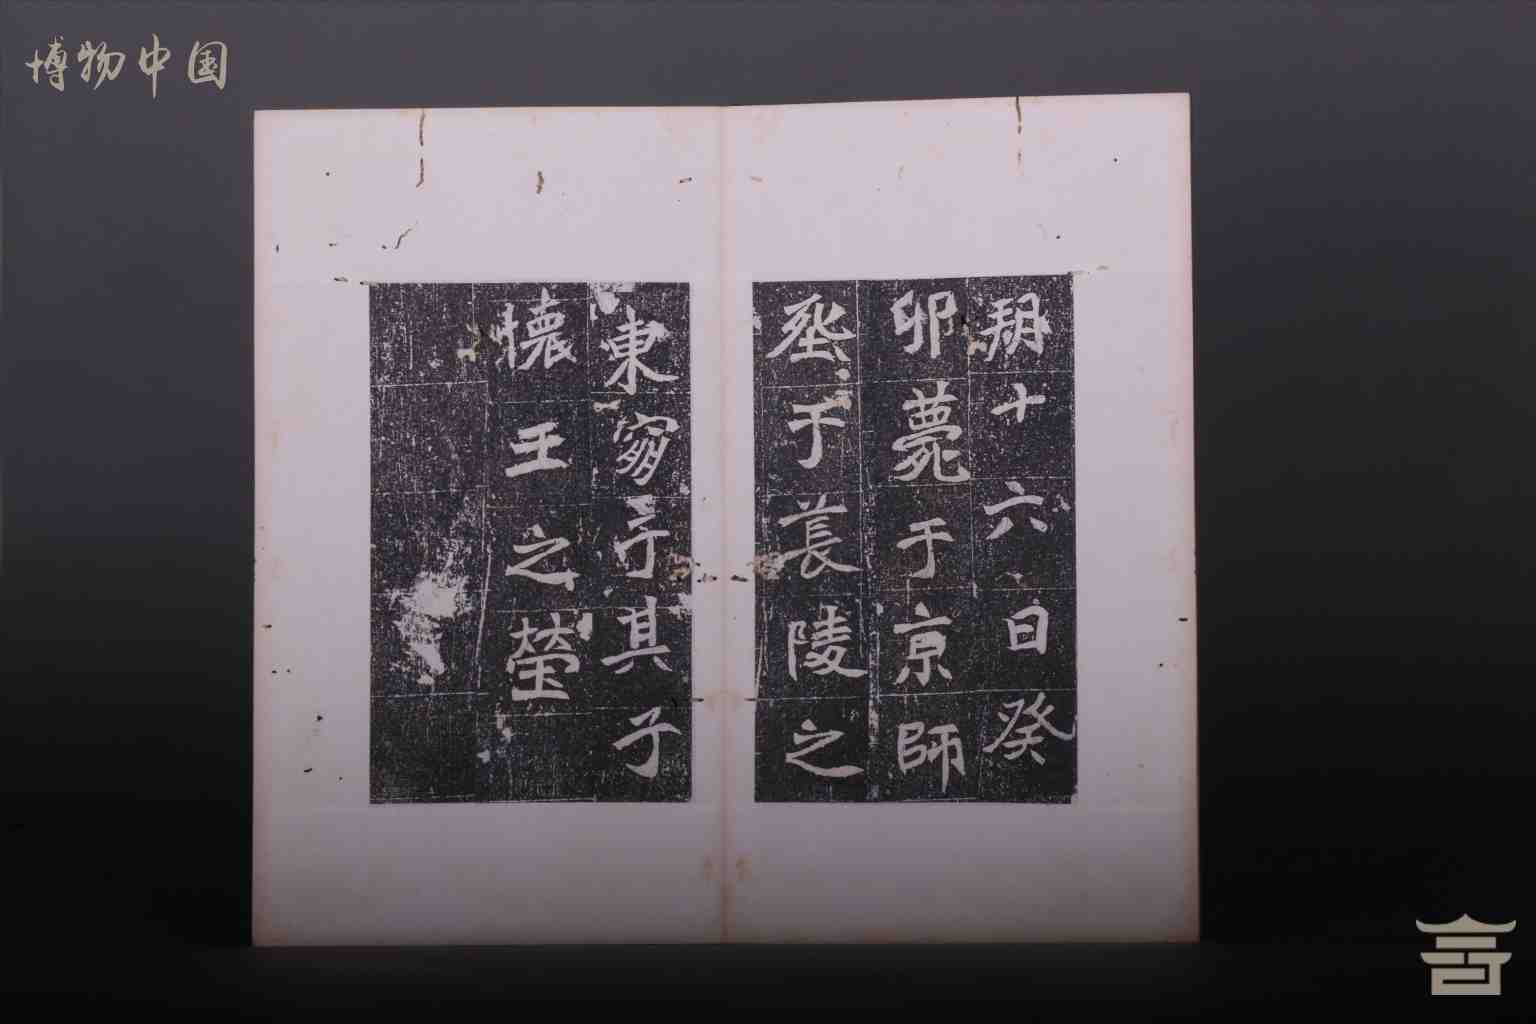 博物中国
朔十六日癸
卯薨于京師
葬于長陵之
東窮子其子
懷王之塋